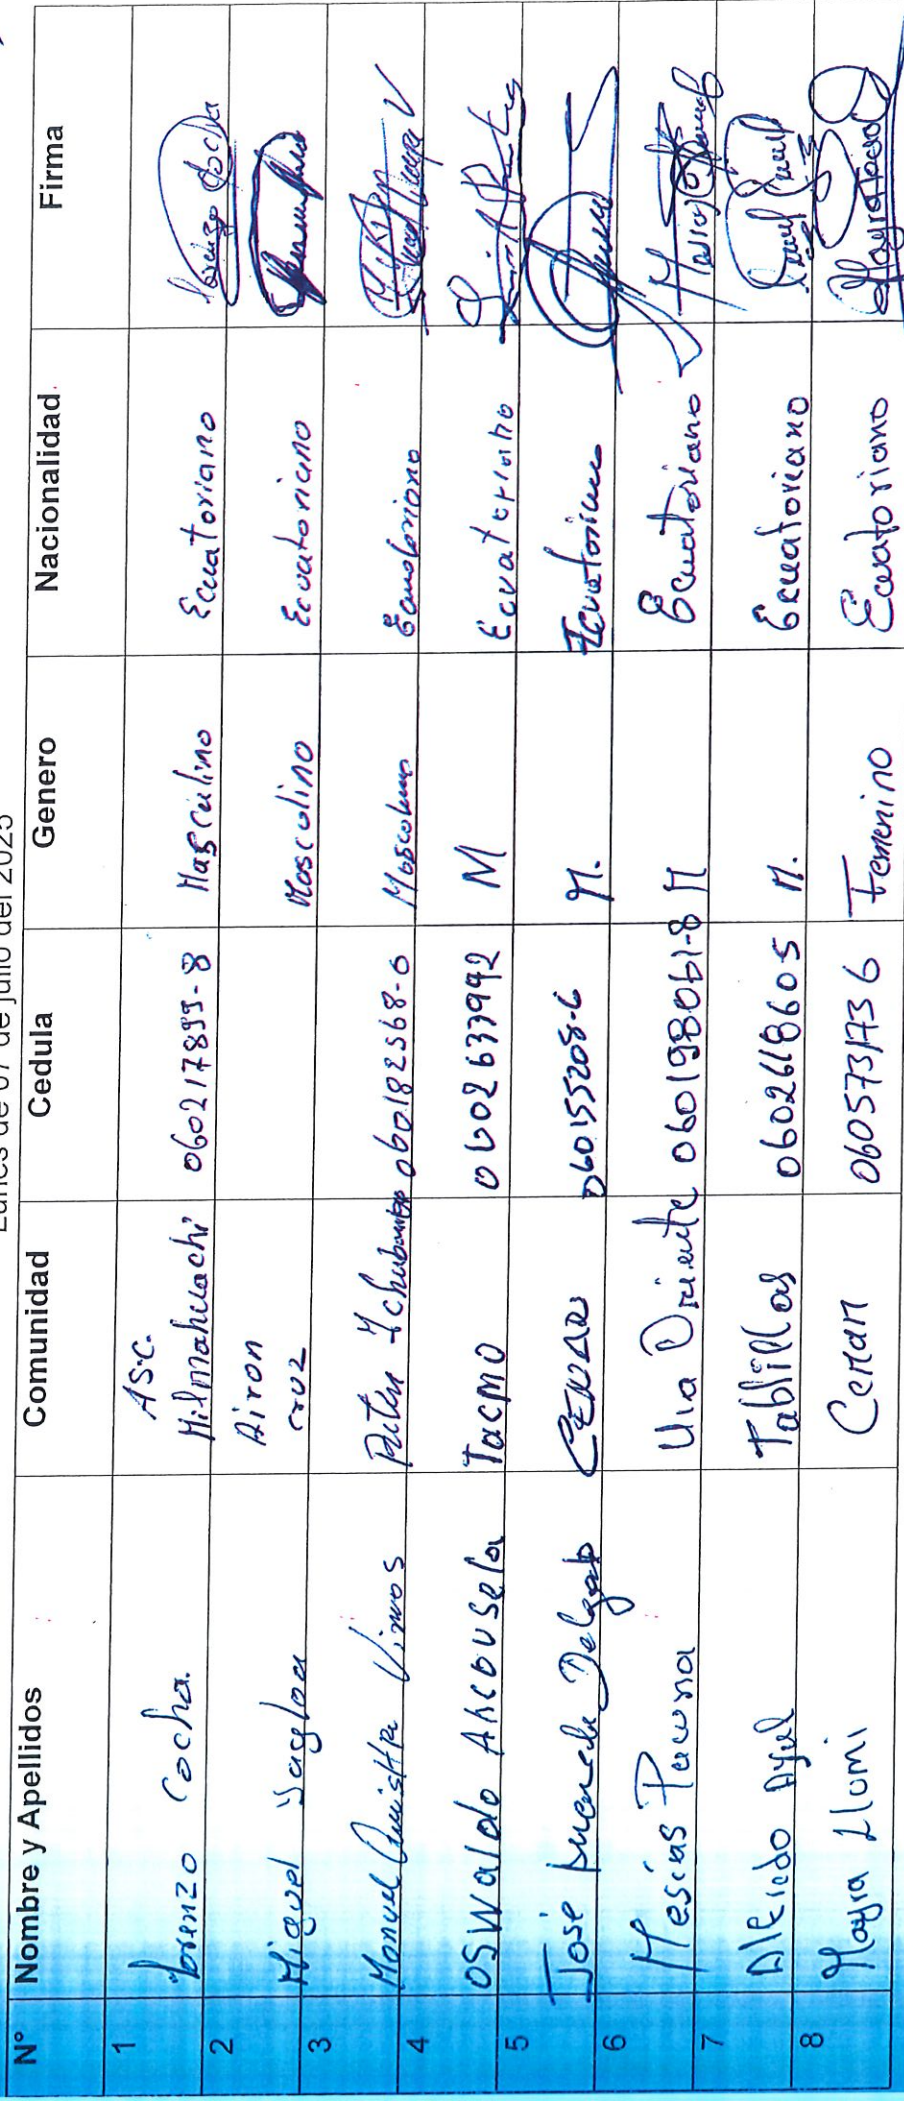 Lunes de 07 de julio del 2025
N° Nombre y Apellidos Comunidad Cedula Genero Nacionalidad Firma
1 Lorenzo Cocha. ASC. Hilmahuachi 060217899-8 Masculino Ecuatoriano Lorenzo Cocha
2 Miguel Yasaloa Airon Cruz Masculino Ecuatoriano
3 Manuel Vimos 060182568-0 Masculino Ecuatoriano
4 OSWaldo Tacmo 0602633992 M Ecuatoriano
5 José Delgado 060155208-6 M. Ecuatoriano
6 Mesías Via Oriente 060198061-8 M Ecuatoriano
7 Alcido Tablillas 0602618605 M. Ecuatoriano
8 Mayra Llumi Ceman 0605731736 Femenino Ecuatoriano